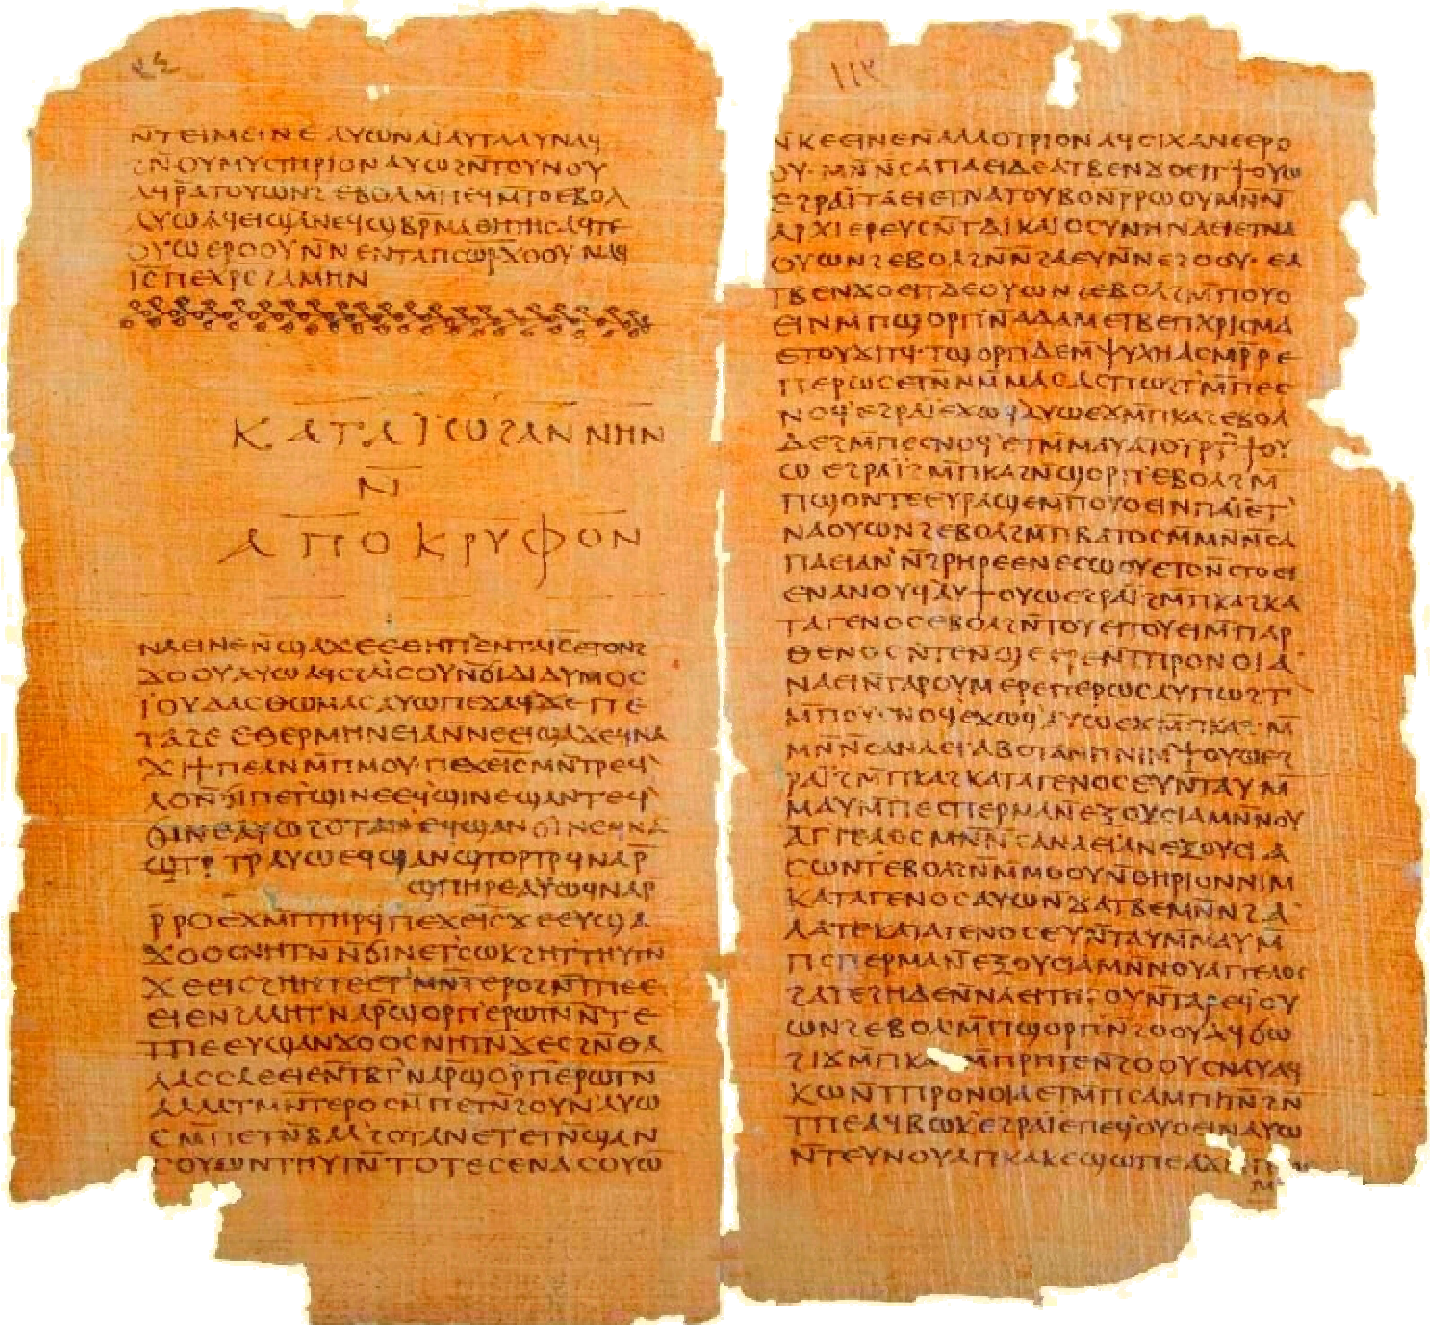 ⲛ̄ⲧⲉⲓⲙⲉⲓⲛⲉ ⲁⲩⲱⲛⲁⲓⲁⲩⲧⲁⲁⲩⲛⲁϥ
ϩⲛ̄ⲟⲩⲙⲩⲥⲧⲏⲣⲓⲟⲛⲁⲩⲱϩⲛ̄ⲧⲟⲩⲛⲟⲩ
ⲁϥⲣ̄ⲁⲧⲟⲩⲱⲛϩ ⲉⲃⲟⲗⲙ̄ⲡⲉϥⲙ̄ⲧⲟⲉⲃⲟⲗ
ⲁⲩⲱⲁϥⲉⲓϣⲁⲛⲉϥϣⲃⲣ̄ⲙⲁⲑⲏⲧⲏⲥⲁϥⲧⲉ
ⲟⲩⲱ ⲉⲣⲟⲟⲩⲛ̄ⲛⲉⲛⲧⲁⲡⲥⲱ̅ⲣ̅ϫⲟⲟⲩ ⲛⲁϥ
ⲓ̅ⲥ̅ ⲡⲉⲭⲣ̅ⲥ̅ ϩⲁⲙⲏⲛ
ⲕⲁⲧⲁ ⲓⲱϩⲁⲛⲛⲏⲛ
ⲛ̄
ⲁⲡⲟⲕⲣⲩⲫⲟⲛ
ⲛⲁⲉⲓⲛⲉⲛ̄ϣⲁϫⲉⲉⲑⲏⲡ`ⲉⲛⲧⲁⲓ̅ⲥ̅ⲉⲧⲟⲛϩ
ϫⲟⲟⲩⲁⲩⲱⲁϥⲥϩⲁⲓ̈ⲥⲟⲩⲛ̄ϭⲓⲇⲓⲇⲩⲙⲟⲥ
ⲓ̈ⲟⲩⲇⲁⲥⲑⲱⲙⲁⲥⲁⲩⲱⲡⲉϫⲁϥϫⲉⲡⲉ
ⲧⲁϩⲉⲉⲑⲉⲣⲙⲏⲛⲉⲓⲁⲛ̄ⲛⲉⲉⲓϣⲁϫⲉϥⲛⲁ
ϫⲓϯⲡⲉⲁⲛⲙ̄ⲡⲙⲟⲩ ⲡⲉϫⲉⲓ̅ⲥ̅ⲙⲛ̄ⲧⲣⲉϥ`
ⲗⲟⲛ̄ϭⲓⲡⲉⲧ`ϣⲓⲛⲉⲉϥ`ϣⲓⲛⲉϣⲁⲛⲧⲉϥ`
ϭⲓⲛⲉⲁⲩⲱϩⲟⲧⲁⲛ`ⲉϥϣⲁⲛϭⲓⲛⲉϥⲛⲁ
ϣⲧⲣ̄ⲧⲣ̄ⲁⲩⲱⲉϥϣⲁⲛϣⲧⲟⲣⲧⲣ̄ϥⲛⲁⲣ̄
ϣⲡⲏⲣⲉⲁⲩⲱϥⲛⲁⲣ̄
ⲣ̄ⲣⲟⲉϫⲙ̄ⲡⲧⲏⲣϥ ⲡⲉϫⲉⲓ̅ⲥ̅ϫⲉⲉⲩϣⲁ
ϫⲟⲟⲥⲛⲏⲧⲛ̄ⲛ̄ϭⲓⲛⲉⲧ`ⲥⲱⲕϩⲏⲧ`ⲧⲏⲩⲧⲛ̄
ϫⲉⲉⲓⲥϩⲏⲏⲧⲉⲉⲧ`ⲙⲛ̄ⲧⲉⲣⲟϩⲛ̄ⲧⲡⲉⲉ
ⲉⲓⲉⲛϩⲁⲗⲏⲧ`ⲛⲁⲣ̄ϣⲟⲣⲡ`ⲉⲣⲱⲧⲛ̄ⲛ̄ⲧⲉ
ⲧⲡⲉⲉⲩϣⲁⲛϫⲟⲟⲥⲛⲏⲧⲛ̄ϫⲉⲥϩⲛ̄ⲑⲁ
ⲗⲁⲥⲥⲁⲉⲉⲓⲉⲛ̄ⲧⲃⲧ`ⲛⲁⲣ̄ϣⲟⲣⲡ`ⲉⲣⲱⲧⲛ̄
ⲁⲗⲗⲁⲧⲙⲛ̄ⲧⲉⲣⲟⲥⲙ̄ⲡⲉⲧⲛ̄ϩⲟⲩⲛ`ⲁⲩⲱ
ⲥⲙ̄ⲡⲉⲧⲛ̄ⲃⲁⲗ`ϩⲟⲧⲁⲛⲉⲧⲉⲧⲛ̄ϣⲁⲛ
ⲥⲟⲩⲱⲛⲧⲏⲩⲧⲛ̄ⲧⲟⲧⲉⲥⲉⲛⲁⲥⲟⲩⲱ
ⲛ̄ⲕⲉⲉⲓⲛⲉⲛ̄ⲁⲗⲗⲟⲧⲣⲓⲟⲛ ⲁϥⲥⲓⲭⲁⲛⲉⲉⲣⲟ
ⲟⲩ· ⲙⲛ̄ⲛ̄ⲥⲁⲡⲁⲉⲓⲇⲉⲁⲧⲃⲉⲛϫⲟⲉⲓⲧ`ϯⲟⲩⲱ
ⲉϩⲣⲁⲓ̈ⲧⲁⲉⲓⲉⲧⲛⲁⲧⲟⲩⲃⲟⲛ̄ⲣ̄ⲣⲱⲟⲩⲙⲛ̄ⲛ̄
ⲁⲣⲭⲓⲉⲣⲉⲩⲥⲛ̄ⲧⲇⲓⲕⲁⲓⲟⲥⲩⲛⲏⲛⲁⲉⲓⲉⲧⲛⲁ
ⲟⲩⲱⲛϩⲉⲃⲟⲗϩⲛ̄ⲛ̄ϩⲁⲉⲩⲛ̄ⲛⲉϩⲟⲟⲩ· ⲉⲁ
ⲧⲃⲉⲛϫⲟⲉⲓⲧ`ⲇⲉⲟⲩⲱⲛϩⲉⲃⲟⲗϩⲙ̄ⲡⲟⲩⲟ
ⲉⲓⲛⲙ̄ⲡϣⲟⲣⲡ`ⲛⲁⲇⲁⲙ ⲉⲧⲃⲉⲡⲭⲣⲓⲥⲙⲁ
ⲉⲧⲟⲩϫⲓⲧϥ·ⲧϣⲟⲣⲡ ⲇⲉⲙ̄ⲯⲩⲭⲏⲁⲥⲙⲣ̄ⲣⲉ
ⲡⲉⲣⲱⲥⲉⲧⲛⲙ̄ⲙⲁⲥⲁⲥⲡⲱϩⲧ`ⲙ̄ⲡⲉⲥ
ⲥⲛⲟϥ`ⲉϩⲣⲁⲓ̈ⲉϫⲱϥ`ⲁⲩⲱⲉϫⲙ̄ⲡⲕⲁϩⲉⲃⲟⲗ
ⲇⲉϩⲙ̄ⲡⲉⲥⲛⲟϥ`ⲉⲧⲙ̄ⲙⲁⲩϯⲟⲩ
ⲱ ⲉϩⲣⲁⲓ̈ϩⲙ̄ⲡⲕⲁϩⲛ̄ϣⲟⲣⲡ`ⲉⲃⲟⲗϩⲙ̄
ⲡϣⲟⲛⲧⲉⲉⲩⲣⲁϣⲉⲙ̄ⲡⲟⲩⲟⲉⲓⲛⲡⲁⲓ̈ⲉⲧ`
ⲛⲁⲟⲩⲱⲛϩⲉⲃⲟⲗϩⲙ̄ⲡⲃⲁⲧⲟⲥⲙⲛ̄ⲛ̄ⲥⲁ
ⲡⲁⲉⲓⲁⲛϩⲣⲏⲣⲉⲉⲛⲉⲥⲱⲟⲩⲉⲧⲟⲛ̄ⲥⲧⲟⲉⲓ
ⲉⲛⲁⲛⲟⲩϥ`ⲁⲩϯⲟⲩⲱⲉϩⲣⲁⲓ̈ϩⲙ̄ⲡⲕⲁϩⲕⲁ
ⲧⲁⲅⲉⲛⲟⲥⲉⲃⲟⲗϩⲛ̄ⲧⲟⲩⲉⲓⲧⲟⲩⲉⲓⲙ̄ⲡⲁⲣ
ⲑⲉⲛⲟⲥⲛ̄ⲧⲉⲛϣⲉⲉⲣⲉⲛ̄ⲧⲡⲣⲟⲛⲟⲓⲁ
ⲛⲁⲉⲓⲛ̄ⲧⲁⲣⲟⲩⲙⲉⲣⲉⲡⲉⲣⲱⲥⲁⲩⲡⲱϩⲧ`
ⲙ̄ⲡⲟⲩⲥⲛⲟϥ`ⲉϫⲱϥ`ⲁⲩⲱⲉϫⲙ̄ⲡⲕⲁϩ ⲙ
ⲙⲛ̄ⲛ̄ⲥⲁⲛⲁⲉⲓⲁⲃⲟⲧⲁⲛⲏⲛⲓⲙ`ϯⲟⲩⲱⲉϩ
ⲣⲁⲓ̈ϩⲙ̄ⲡⲕⲁϩⲕⲁⲧⲁⲅⲉⲛⲟⲥⲉⲩⲛ̄ⲧⲁⲩⲙ̄
ⲙⲁⲩⲙ̄ⲡⲉⲥⲡⲉⲣⲙⲁⲛ̄ⲛⲉⲝⲟⲩⲥⲓⲁⲙⲛ̄ⲛⲟⲩ
ⲁⲅⲅⲉⲗⲟⲥⲙⲛ̄ⲛ̄ⲥⲁⲛⲁⲉⲓⲁⲛⲉⲝⲟⲩⲥⲓⲁ
ⲥⲱⲛⲧ`ⲉⲃⲟⲗϩⲛ̄ⲙ̄ⲙⲟⲟⲩⲛ̄ⲑⲏⲣⲓⲟⲛⲛⲓⲙ
ⲕⲁⲧⲁⲅⲉⲛⲟⲥⲁⲩⲱⲛ̄ϫⲁⲧⲃⲉⲙⲛ̄ⲛ̄ϩⲁ
ⲗⲁⲧⲉⲕⲁⲧⲁⲅⲉⲛⲟⲥⲉⲩⲛ̄ⲧⲁⲩⲙ̄ⲙⲁⲩⲙ̄
ⲡⲥⲡⲉⲣⲙⲁⲛ̄ⲛⲉⲝⲟⲩⲥⲓⲁⲙⲛ̄ⲛⲟⲩⲁⲅⲅⲉⲗⲟⲥ
ϩⲁⲧⲉϩⲏⲇⲉⲛ̄ⲛⲁⲉⲓⲧⲏⲣⲟⲩⲛ̄ⲧⲁⲣⲉϥ`ⲟⲩ
ⲱⲛϩⲉⲃⲟⲗⲙ̄ⲡϣⲟⲣⲡ`ⲛ̄ϩⲟⲟⲩⲁϥϭⲱ
ϩⲓϫⲙ̄ⲡⲕⲁϩⲙ̄ⲡⲣⲏⲧⲉⲛ̄ϩⲟⲟⲩⲥⲛⲁⲩⲁϥ
ⲕⲱⲛ̄ⲧⲡⲣⲟⲛⲟⲓⲁⲉⲧⲙ̄ⲡⲥⲁⲙⲡⲓⲧⲛ̄ϩⲛ̄
ⲧⲡⲉⲁϥⲃⲱⲕ`ⲉϩⲣⲁⲓ̈ⲉⲡⲉϥ`ⲟⲩⲟⲉⲓⲛⲁⲩⲱ
ⲛ̄ⲧⲉⲩⲛⲟⲩⲁⲡⲕⲁⲕⲉϣⲱⲡⲉⲁϫⲙ̄